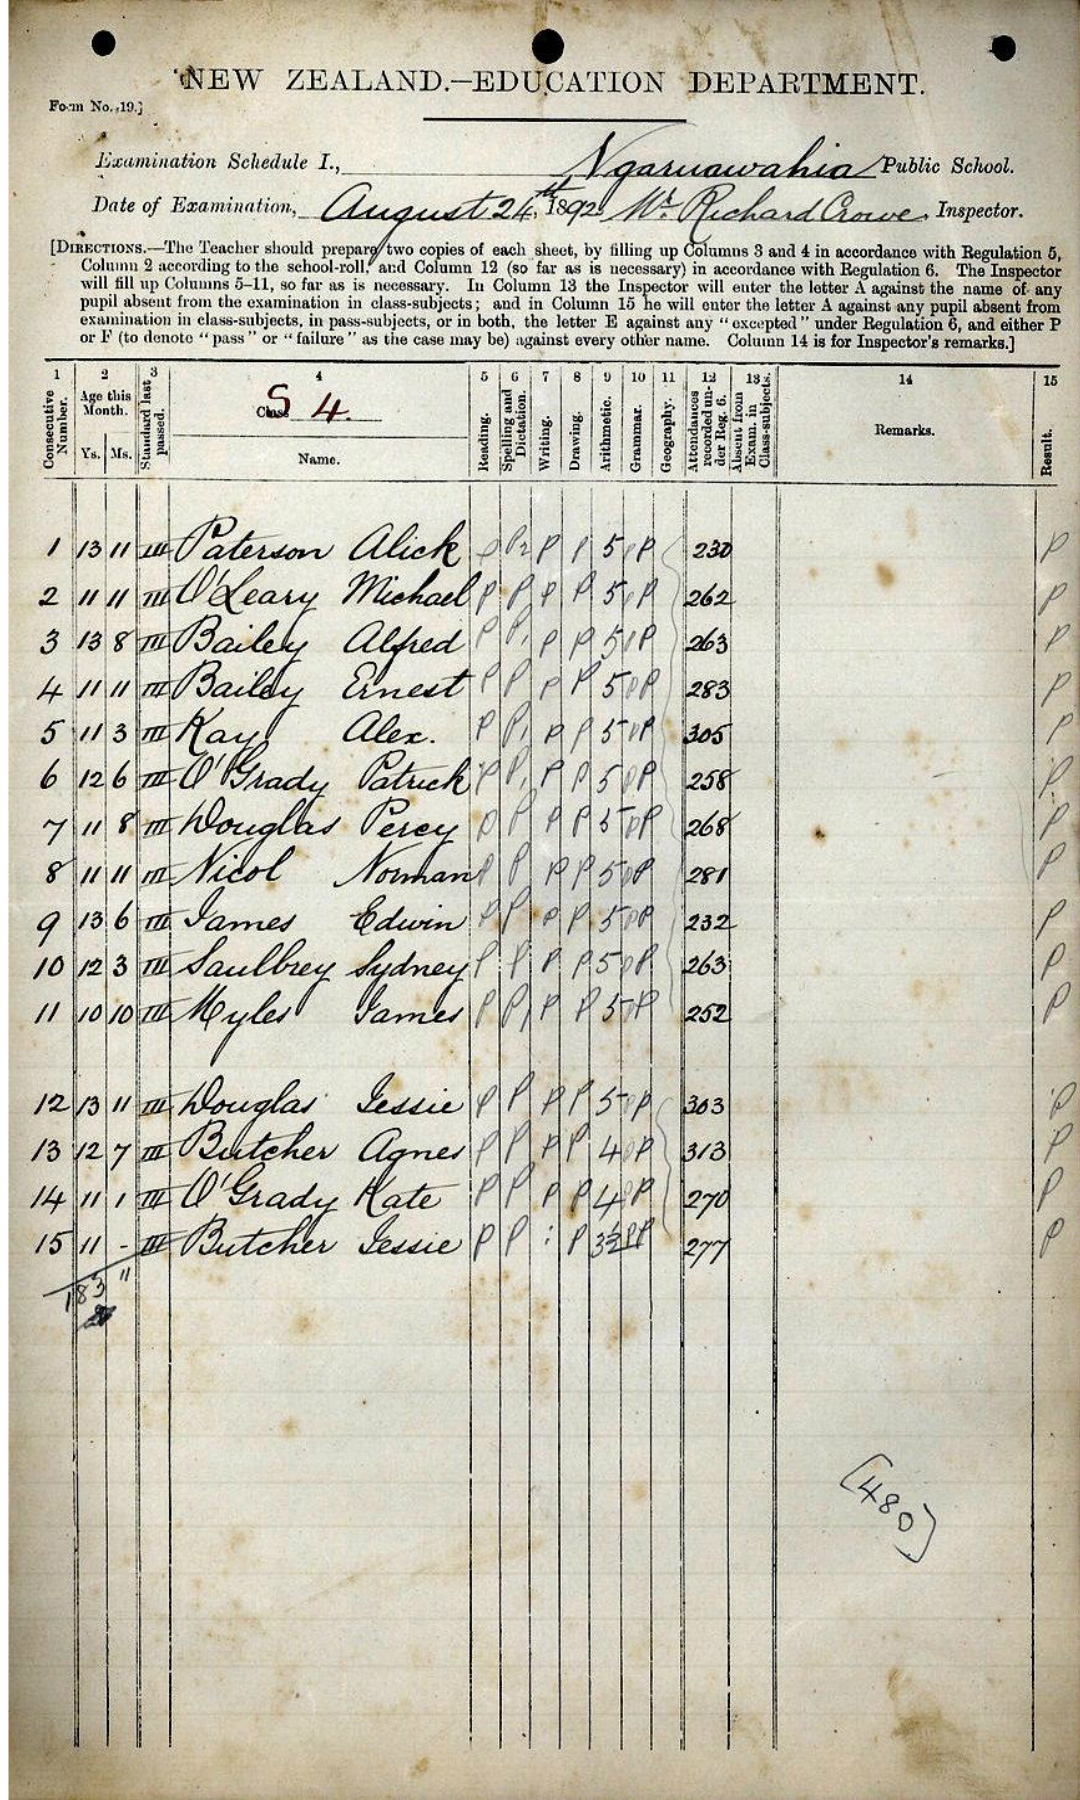 NEW ZEALAND.—EDUCATION DEPARTMENT.
Form No. 19.]
Examination Schedule I., Ngaruawahia Public School.
Date of Examination, August 24th, 1892. Mr. Richard Crowe, Inspector.
[DIRECTIONS.—The Teacher should prepare two copies of each sheet, by filling up Columns 3 and 4 in accordance with Regulation 5,
Column 2 according to the school-roll, and Column 12 (so far as is necessary) in accordance with Regulation 6. The Inspector
will fill up Columns 5–11, so far as is necessary. In Column 13 the Inspector will enter the letter A against the name of any
pupil absent from the examination in class-subjects; and in Column 15 he will enter the letter A against any pupil absent from
examination in class-subjects, in pass-subjects, or in both, the letter E against any “excepted” under Regulation 6, and either P
or F (to denote “pass” or “failure” as the case may be) against every other name. Column 14 is for Inspector's remarks.]
1 2 3 4 5 6 7 8 9 10 11 12 13 14 15
Consecutive Number.
Age this Month.
Ys. Ms.
Standard last passed.
Class S 4.
Name.
Reading.
Spelling and Dictation.
Writing.
Drawing.
Arithmetic.
Grammar.
Geography.
Attendances recorded under Reg. 6.
Absent from Exam. in Class-subjects.
Remarks.
Result.
1 13 11 III Paterson Alick P P2 P P 5 P 230 P
2 11 11 III O'Leary Michael P P P P 5 P 262 P
3 13 8 III Bailey Alfred P P P P 5 P 263 P
4 11 11 III Bailey Ernest P P P P 5 P P 283 P
5 11 3 III Kay Alex. P P P P 5 P P 305 P
6 12 6 III O'Grady Patrick P P P P 5 P P 258 P
7 11 8 III Douglas Percy P P P P 5 P P 268 P
8 11 11 III Nicol Norman P P P P 5 P P 281 P
9 13 6 III James Edwin P P P P 5 P P 232 P
10 12 3 III Saulbrey Sydney P P P P 5 P P 263 P
11 10 10 III Myles James P P P P 5 P P 252 P
12 13 11 III Douglas Jessie P P P P 5 P P 303 P
13 12 7 III Butcher Agnes P P P P 4 P P 313 P
14 11 1 III O'Grady Kate P P P P 4 P P 270 P
15 11 - III Butcher Jessie P P : P 3½ P P 277 P
183 "
(480)